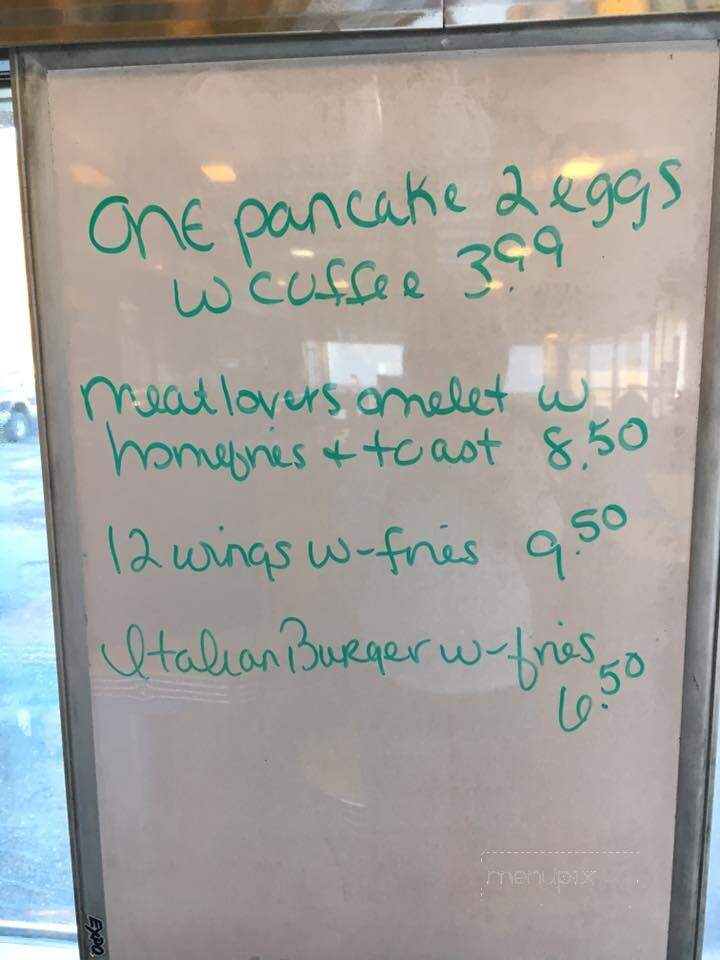 One pancake 2 eggs
w coffee 3.99
meatlovers omelet w
homefries + toast 8.50
12 wings w-fries 9.50
Italian Burger w-fries
6.50
menupix
EXPO